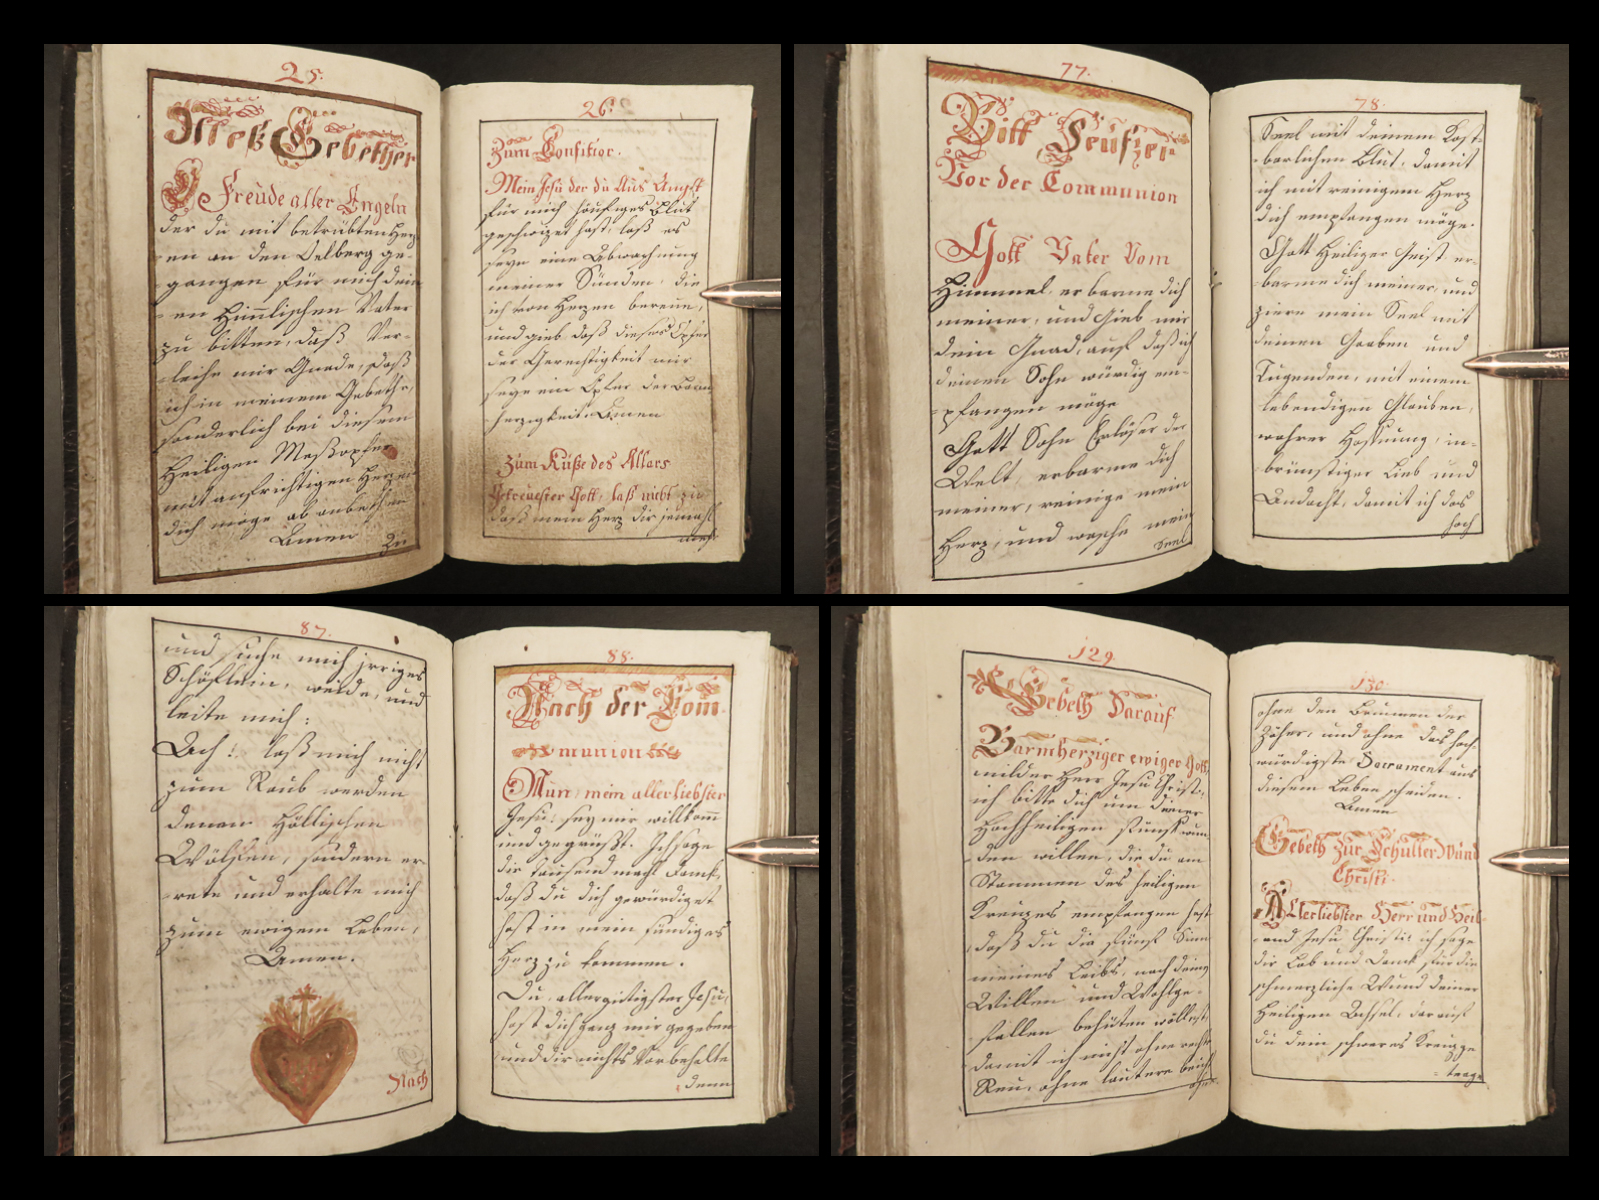 25.
Meß Gebether
O Freude aller Engeln
der du mit betrübten Her-
en an den Oelberg ge-
gangen für mich dein
en Him̄lischen Vater
zu bitten, daß Ver-
leihe mir Gnade, daß
ich in meinem Gebethe,
sonderlich bei diesem
Heiligen Meßopfer
mit aufrichtigen Herzen
dich möge ab anbethen
Amen
Zu
26.
Zum Confitior.
Mein Jesu der du Aus Angst
für mich häufiges Blut
geschwizet hast, laß es
seyn eine Abwaschung
meiner Sünden, die
ich von Herzen bereue,
und gieb daß dieses Opfer
der Gerechtigkeit mir
seye ein Opfer der Barm
herzigkeit Amen
Zum Kuße des Altars
Getreuester Gott, laß nicht zu
daß mein Herz dir jemahl
77.
Bitt Seufzer
Vor der Communion
Gott Vater Vom
Himmel, erbarme dich
meiner, und Gieb mir
dein Gnad, auf daß ich
deinen Sohn würdig em-
pfangen möge
Gott Sohn Erlöser der
Welt, erbarme dich
meiner, reinige mein
Herz, und wasche mein
Seel
78.
Seel mit deinem Kost-
barlichen Blut, damit
ich mit reinigem Herz
dich empfangen möge.
Gott Heiliger Geist er-
barme dich meiner, und
ziere mein Seel mit
deinen Gaaben und
Tugenden, mit einem
lebendigen Glauben,
wahrer Hoffnung, in-
brünstiger Lieb und
Andacht, damit ich das
hoch
87.
und suche mich irriges
Schäflein, weide, und
leite mich:
Ach! laß mich nicht
zum Raub werden
denen Höllischen
Wölfen, sondern er-
rete und erhalte mich
zum ewigem Leben,
Amen.
Nach
88.
Nach der Com-
munion
Nun, mein allerliebster
Jesu: sey mir willkom̄
und gegrüßt. Ich sage
dir tausend mahl Dank,
daß du dich gewürdiget
hast in mein sündiges
Herz zu kommen.
Du allergütigster Jesu,
hast dich ganz mir gegeben
und dir nichts Vorbehalte
denn
129
Gebeth Darauf
Barmherziger ewiger Gott,
milder Herr Jesu Christi,
ich bitte dich um deiner
Hochheiligen fünf wun-
den willen, die du am
Stammen des heiligen
Kreuzes empfangen hast
daß du die fünf Sinn
meines Leibs, nach deinem
Willen und Wohlge-
fallen behüten wöllest,
damit ich nicht ohne rechte
Reu, ohne lautere beicht
ohne
130.
ohne den Brunnen der
Zäher, und ohne das hoch-
würdigste Sacrament aus
diesem Leben scheiden.
Amen
Gebeth Zur Schulter Wund
Christi.
Allerliebster Herr und Heil-
and Jesu Christi: ich sage
dir Lob und Dank für die
schmerzliche Wund deiner
Heiligen Achsel, darauf
du dein schweres Kreuze
trage